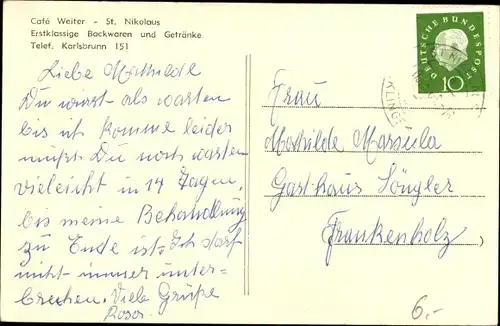 Café Weiter - St. Nikolaus
Erstklassige Backwaren und Getränke
Telef. Karlsbrunn 151
Liebe Mathilde
Du wirst als warten
bis ich komme leider
mußt Du noch warten
vieleicht in 14 Tagen,
bis meine Behandlung
zu Ende ist. Ich darf
nicht immer unter=
brechen. Viele Grüße
Rosa
DEUTSCHE BUNDESPOST
10
Frau
Mathilde Marsula
Gasthaus Söngler
Frankenholz
6,-